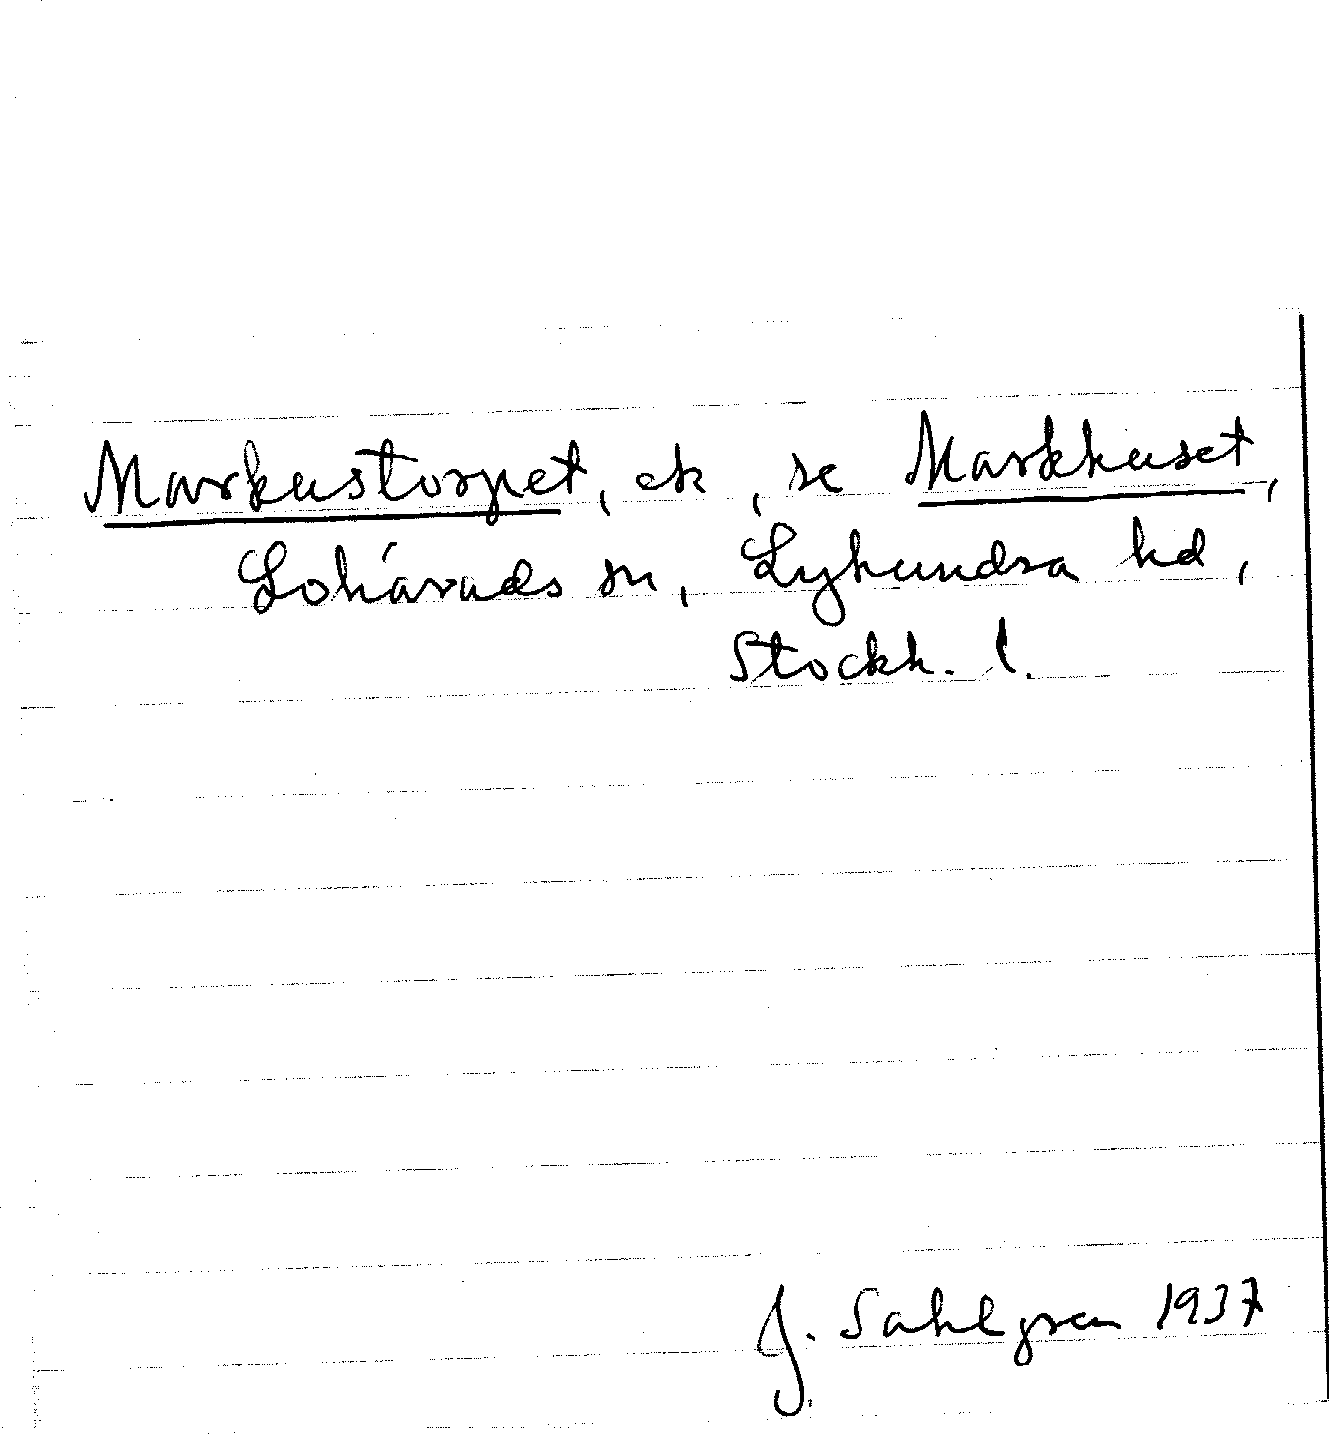 Markustorpet, ek, se Markhuset,
Lohärads sn, Lyhundra hd,
Stockh. l.
J. Sahlgren 1937